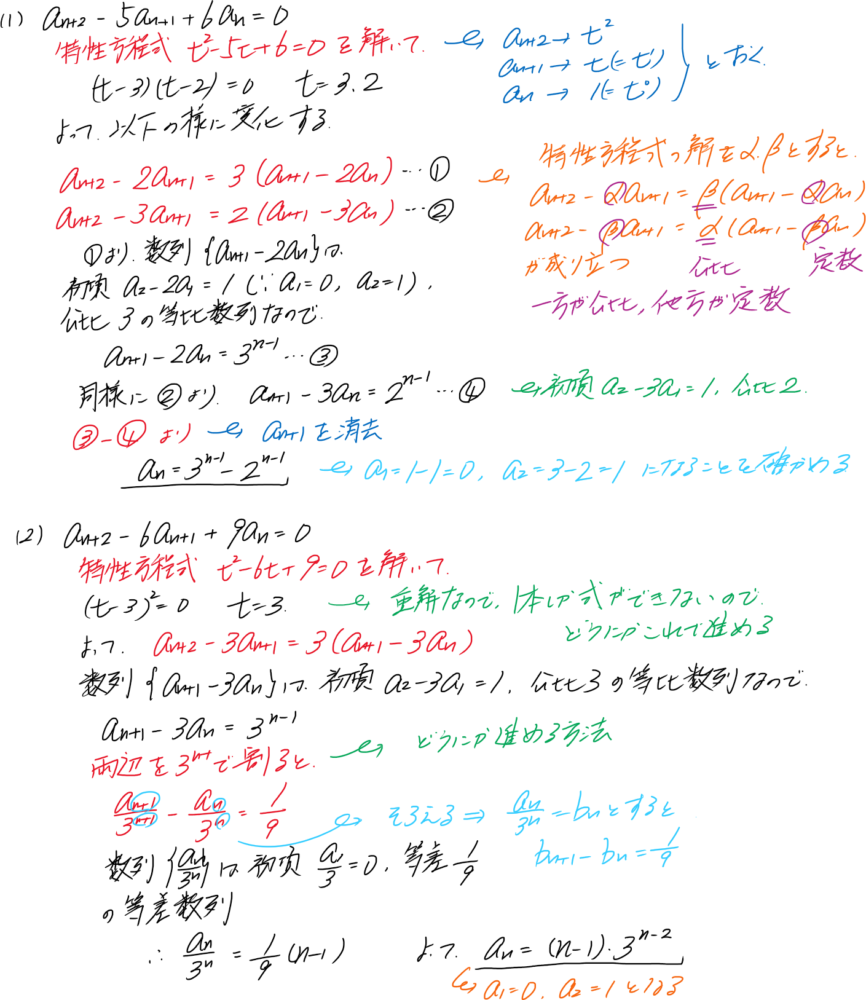 (1) a_{n+2} - 5a_{n+1} + 6a_n = 0
特性方程式 t²-5t+6=0 を解いて.
→ a_{n+2} → t²
a_{n+1} → t (= t¹)
a_n → 1 (= t⁰)
とおく.
(t-3)(t-2)=0 t=3.2
よって. 以下の様に変化する.
a_{n+2} - 2a_{n+1} = 3(a_{n+1} - 2a_n) … ①
a_{n+2} - 3a_{n+1} = 2(a_{n+1} - 3a_n) … ②
→ 特性方程式の解をα.βとすると.
a_{n+2} - αa_{n+1} = β(a_{n+1} - αa_n)
a_{n+2} - βa_{n+1} = α(a_{n+1} - βa_n)
が成り立つ 公比 定数
一方が公比, 他方が定数
①より. 数列{a_{n+1} - 2a_n}は.
初項 a₂-2a₁=1 (∵ a₁=0, a₂=1),
公比 3 の等比数列なので.
a_{n+1} - 2a_n = 3^{n-1} … ③
同様に②より. a_{n+1} - 3a_n = 2^{n-1} … ④ → 初項 a₂-3a₁=1, 公比 2.
③-④ より → a_{n+1} を消去
a_n = 3^{n-1} - 2^{n-1} → a₁=1-1=0, a₂=3-2=1 になることを確かめる
(2) a_{n+2} - 6a_{n+1} + 9a_n = 0
特性方程式 t²-6t+9=0 を解いて.
(t-3)²=0 t=3. → 重解なので, 1本しか式ができないので.
どうにかこれで進める
よって. a_{n+2} - 3a_{n+1} = 3(a_{n+1} - 3a_n)
数列{a_{n+1} - 3a_n}は. 初項 a₂-3a₁=1, 公比3の等比数列なので.
a_{n+1} - 3a_n = 3^{n-1}
両辺を 3^{n+1} で割ると. → どうにか進める方法
a_{n+1}/3^{n+1} - a_n/3^n = 1/9 → そろえる ⇒ a_n/3^n = b_n とすると
b_{n+1} - b_n = 1/9
数列{a_n/3^n}は 初項 a₁/3 = 0, 等差 1/9
の等差数列
∴ a_n/3^n = 1/9 (n-1) よって. a_n = (n-1)・3^{n-2}
→ a₁=0, a₂=1 となる